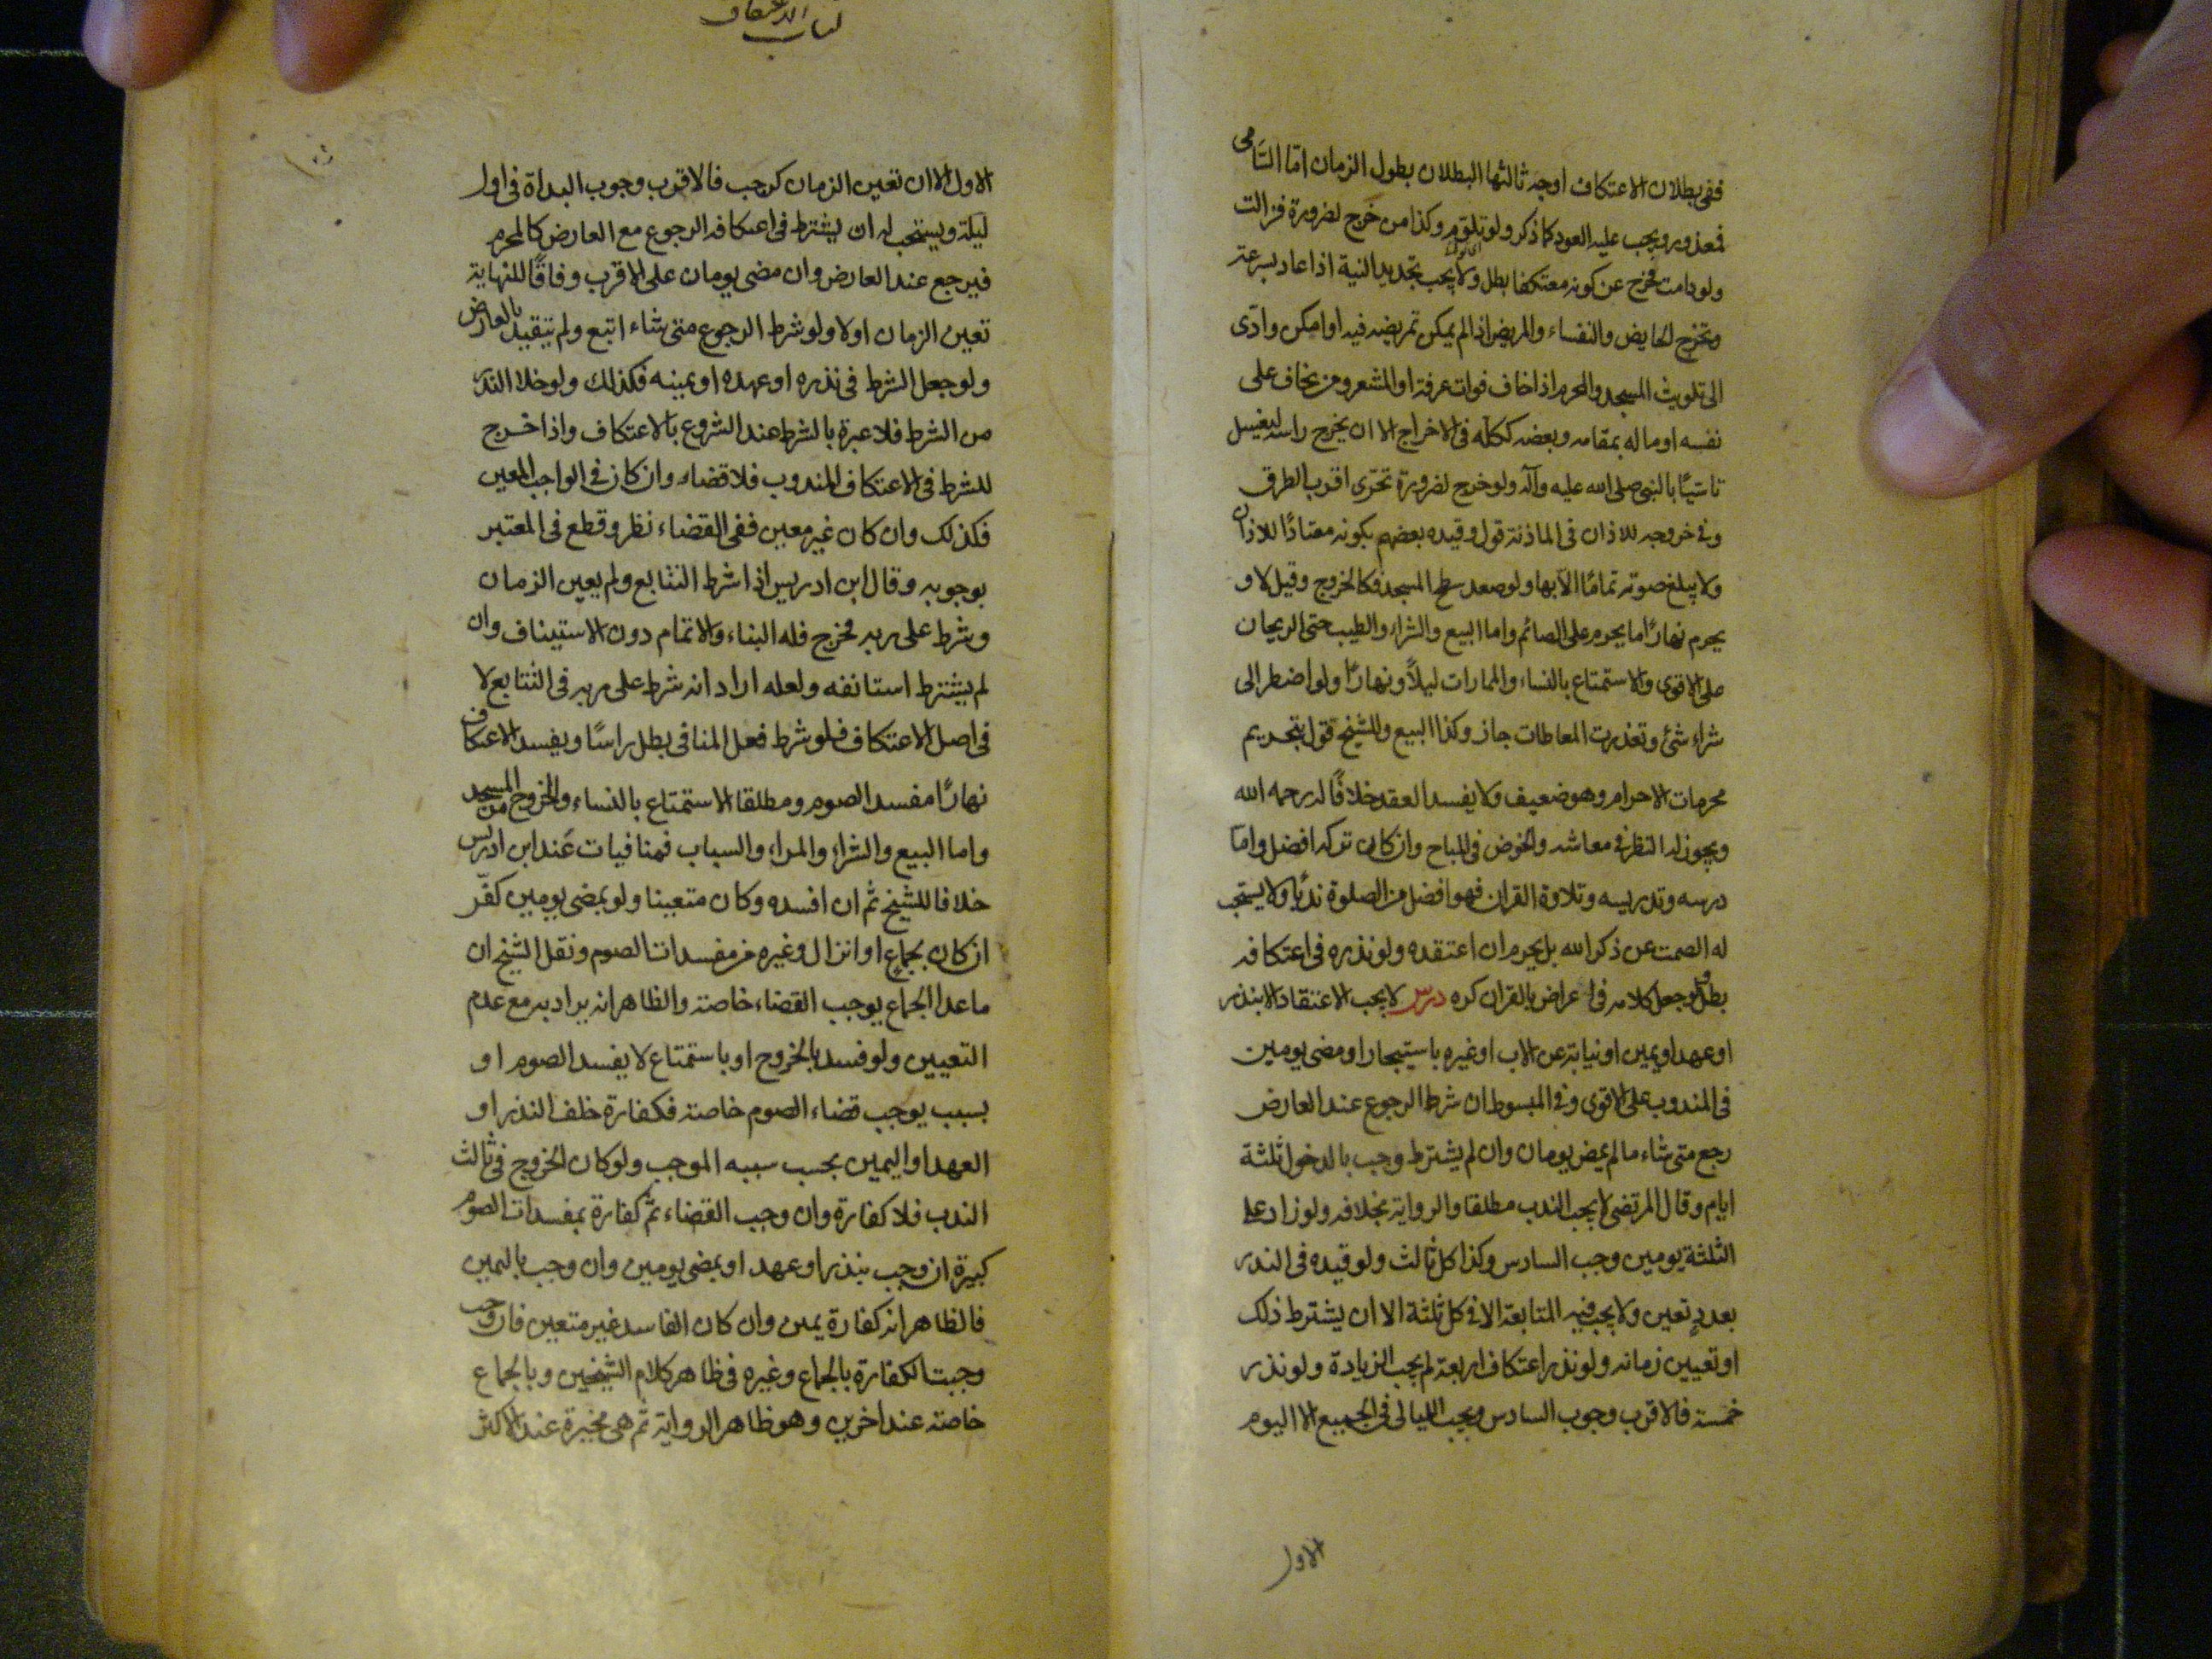 ففى بطلان الاعتكاف اوجه ثالثها البطلان بطول الزمان امّا النّاسى
فمعذور ويجب عليه العود كما ذكر ولو تلوّم وكذا من خرج لضرورة فزالت
ولو دامت فخرج عن كونه معتكفا بطل ولا يجب تجديد النية اذا عاد بسرعة
وتخرج الحايض والنفساء والمريض اذا لم يمكن تمريضه فيه او امكن وادّى
الى تلويث المسجد والمحرم اذا خاف فوات عرفة او المشعر ومن يخاف على
نفسه او ماله بمقامه وبعضه ككله فى الاخراج الا ان يخرج راسه ليغسل
تاسّيًا بالنبى صلى الله عليه وآله ولو خرج لضرورة تحرّى اقرب الطرق
وفى خروجه للاذان فى الماذنة قول وقيده بعضهم بكونه معتادًا للاذان
ولا يبلغ صوته تمامًا الّا بها ولو صعد سطح المسجد فكالخروج وقيل لا و
يحرم نهارًا ما يحرم على الصائم واما البيع والشراء والطيب حتى الريحان
على الاقوى والاستمتاع بالنساء والممارات ليلاً ونهارًا ولو اضطر الى
شراء شئ وتعذرت المعاطات جاز وكذا البيع وللشيخ قول بتحريم
محرمات الاحرام وهو ضعيف ولا يفسد العقد خلافًا له رحمه الله
ويجوز له النظر فى معاشه والخوض فى المباح وان كان تركه افضل وامّا
درسه وتدريسه وتلاوة القران فهو افضل من الصلوة ندبًا ولا يستحب
له الصمت عن ذكر الله بل يحرم ان اعتقده ولو نذره فى اعتكافه
بطل ولو جعل كلامه فى اعراض بالقران كره درس لا يجب الاعتقاد الا بنذر
او عهد او يمين او نيابة عن الاب او غيره باستيجار او مضى يومين
فى المندوب على الاقوى وفى المبسوط ان شرط الرجوع عند العارض
رجع متى شاء ما لم يمض يومان وان لم يشترط وجب بالدخول ثلثة
ايام وقال المرتضى لا يجب الندب مطلقا والرواية بخلافه ولو زاد على
الثلثة يومين وجب السادس وكذا كل ثالث ولو قيده فى النذر
بعددٍ تعين ولا يجب فيه المتابعة الا فى كل ثلثة الا ان يشترط ذلك
او تعيين زمانه ولو نذر اعتكاف اربعة لم يجب الزيادة ولو نذر
خمسة فالاقرب وجوب السادس ويجب الليالى فى الجميع الا اليوم
الاول
كتاب الاعتكاف
الاول الا ان تعين الزمان كرجب فالاقرب وجوب البداة فى اول
ليلة ويستحب له ان يشترط فى اعتكافه الرجوع مع العارض كالمحرم
فيرجع عند العارض وان مضى يومان على الاقرب وفاقًا للنهاية
تعين الزمان اولا ولو شرط الرجوع متى شاء اتبع ولم يتقيد بالعارض
ولو جعل الشرط فى نذره او عهده او يمينه فكذلك ولو خلا النذر
من الشرط فلا عبرة بالشرط عند الشروع بالاعتكاف واذا خرج
للشرط فى الاعتكاف المندوب فلا قضاء وان كان فى الواجب المعين
فكذلك وان كان غير معين ففى القضاء نظر وقطع فى المعتبر
بوجوبه وقال ابن ادريس اذا شرط التتابع ولم يعين الزمان
وشرط على ربه فخرج فله البناء والاتمام دون الاستيناف وان
لم يشترط استانفه ولعله اراد انه شرط على ربه فى التتابع لا
فى اصل الاعتكاف فلو شرط فعل المنافى بطل راسًا ويفسد الاعتكاف
نهارًا مفسد الصوم ومطلقا الاستمتاع بالنساء والخروج من المسجد
واما البيع والشراء والمراء والسباب فمنافيات عند ابن ادريس
خلافا للشيخ ثم ان افسده وكان متعينا ولو بمضى يومين كفّر
ان كان بجماعٍ او انزال وغيره من مفسدات الصوم ونقل الشيخ ان
ما عدا الجماع يوجب القضاء خاصة والظاهر انه يراد به مع عدم
التعيين ولو فسد بالخروج او باستمتاع لا يفسد الصوم او
بسبب يوجب قضاء الصوم خاصة فكفارة خلف النذر او
العهد او اليمين بحسب سببه الموجب ولو كان الخروج فى ثالث
الندب فلا كفارة وان وجب القضاء ثم كفارة بمفسدات الصوم
كبيرة ان وجب بنذر او عهد او بمضى يومين وان وجب باليمين
فالظاهر انه كفارة يمين وان كان الفاسد غير متعين فان وجب
وجبت الكفارة بالجماع وغيره فى ظاهر كلام الشيخين وبالجماع
خاصة عند اخرين وهو ظاهر الرواية ثم هى مخيرة عند الاكثر